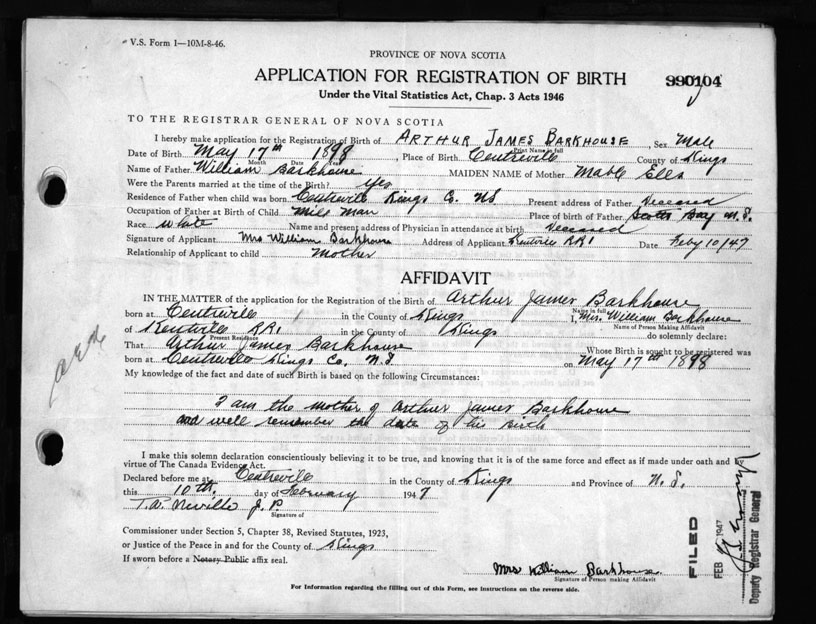 V.S. Form 1—10M-8-46.
PROVINCE OF NOVA SCOTIA
APPLICATION FOR REGISTRATION OF BIRTH
990104
Under the Vital Statistics Act, Chap. 3 Acts 1946
TO THE REGISTRAR GENERAL OF NOVA SCOTIA
I hereby make application for the Registration of Birth of ARTHUR JAMES BARKHOUSE, Sex Male
Print Name in full
Date of Birth May 17th 1898, Place of Birth Centreville County of Kings
Month Date Year
Name of Father William Barkhouse MAIDEN NAME of Mother Mable Ells
Were the Parents married at the time of the Birth? yes
Residence of Father when child was born Centreville Kings Co. NS Present address of Father Deceased
Occupation of Father at Birth of Child Mill Man Place of birth of Father Scotts Bay N.S.
Race white Name and present address of Physician in attendance at birth Deceased
Signature of Applicant Mrs William Barkhouse Address of Applicant Kentville RR1 Date Feby 10/47
Relationship of Applicant to child Mother
AFFIDAVIT
IN THE MATTER of the application for the Registration of the Birth of Arthur James Barkhouse
Name in full
born at Centreville in the County of Kings I, Mrs. William Barkhouse
Name of Person Making Affidavit
of Kentville RR1 in the County of Kings do solemnly declare:
Present Residence
That Arthur James Barkhouse Whose Birth is sought to be registered was
born at Centreville Kings Co. N.S. on May 17th 1898
My knowledge of the fact and date of such Birth is based on the following Circumstances:
I am the mother of Arthur James Barkhouse
and well remember the date of his birth
I make this solemn declaration conscientiously believing it to be true, and knowing that it is of the same force and effect as if made under oath and by
virtue of The Canada Evidence Act.
Declared before me at Centreville in the County of Kings and Province of N.S.
this 10th. day of February 1947
T.A. Neville J.P.
Signature of
Commissioner under Section 5, Chapter 38, Revised Statutes, 1923,
or Justice of the Peace in and for the County of Kings
If sworn before a Notary Public affix seal.
Mrs William Barkhouse
Signature of Person making Affidavit
For Information regarding the filling out of this Form, see Instructions on the reverse side.
FILED
FEB 1947
Deputy Registrar General